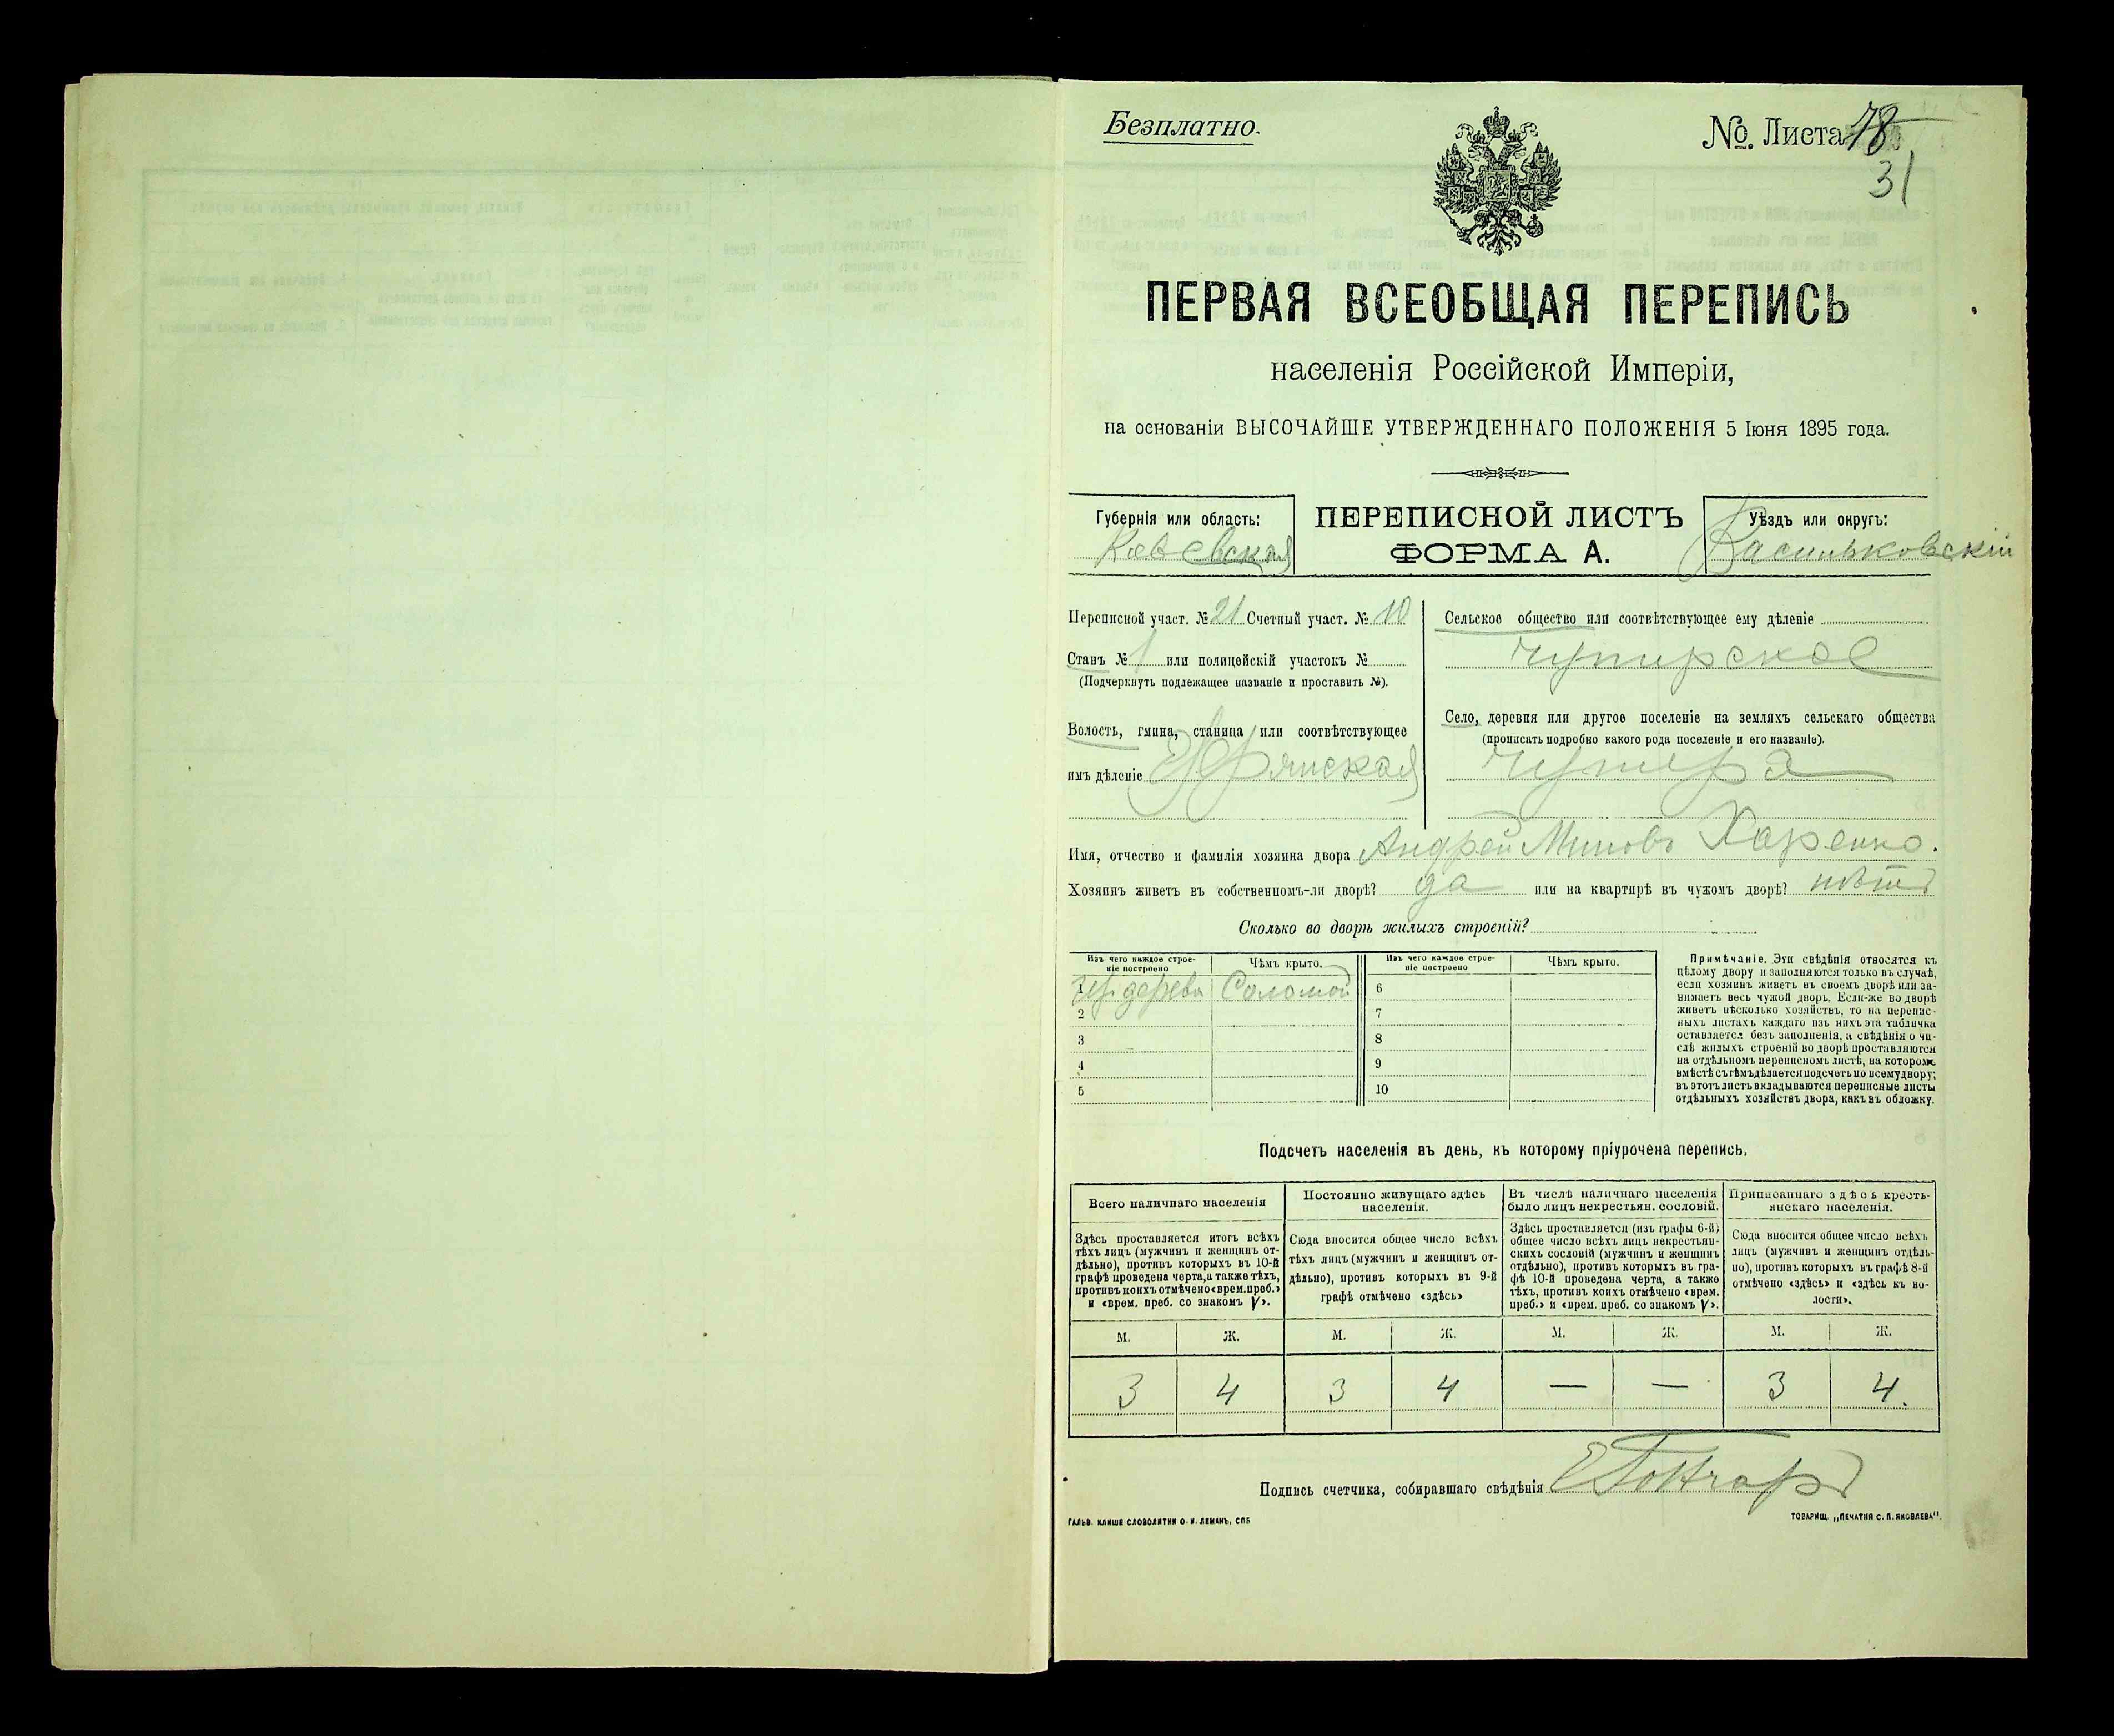 Безплатно.
№. Листа 78
31
ПЕРВАЯ ВСЕОБЩАЯ ПЕРЕПИСЬ
населенія Россійской Имперіи,
на основаніи ВЫСОЧАЙШЕ УТВЕРЖДЕННАГО ПОЛОЖЕНІЯ 5 Іюня 1895 года.
Губернія или область:
Кіевская
ПЕРЕПИСНОЙ ЛИСТЪ
ФОРМА А.
Уѣздъ или округъ:
Васильковскій
Переписной участ. № 21 Счетный участ. № 10
Станъ № 1 или полицейскій участокъ №
(Подчеркнуть подлежащее названіе и проставить №).
Волость, гмина, станица или соотвѣтствующее
имъ дѣленіе
Сельское общество или соотвѣтствующее ему дѣленіе
Чупирское
Село, деревня или другое поселеніе на земляхъ сельскаго общества
(прописать подробно какого рода поселеніе и его названіе).
Чупира
Имя, отчество и фамилія хозяина двора Андрей Миновъ Харенко.
Хозяинъ живетъ въ собственномъ-ли дворѣ? да или на квартирѣ въ чужомъ дворѣ? нѣтъ
Сколько во дворѣ жилыхъ строеній?
Изъ чего каждое строе-
ніе построено
Чѣмъ крыто.
Изъ чего каждое строе-
ніе построено
Чѣмъ крыто.
1 дерева Соломой 6
2 7
3 8
4 9
5 10
Примѣчаніе. Эти свѣдѣнія относятся къ
цѣлому двору и заполняются только въ случаѣ,
если хозяинъ живетъ въ своемъ дворѣ или за-
нимаетъ весь чужой дворъ. Если-же во дворѣ
живетъ нѣсколько хозяйствъ, то на перепис-
ныхъ листахъ каждаго изъ нихъ эта табличка
оставляется безъ заполненія, а свѣдѣнія о чи-
слѣ жилыхъ строеній во дворѣ проставляются
на отдѣльномъ переписномъ листѣ, на которомъ
вмѣстѣ съ тѣмъ дѣлается подсчетъ по всему двору;
въ этотъ листъ вкладываются переписные листы
отдѣльныхъ хозяйствъ двора, какъ въ обложку.
Подсчетъ населенія въ день, къ которому пріурочена перепись.
Всего наличнаго населенія
Здѣсь проставляется итогъ всѣхъ
тѣхъ лицъ (мужчинъ и женщинъ от-
дѣльно), противъ которыхъ въ 10-й
графѣ проведена черта, а также тѣхъ,
противъ коихъ отмѣчено «врем. преб.»
и «врем. преб. со знакомъ V».
Постоянно живущаго здѣсь
населенія.
Сюда вносится общее число всѣхъ
тѣхъ лицъ (мужчинъ и женщинъ от-
дѣльно), противъ которыхъ въ 9-й
графѣ отмѣчено «здѣсь»
Въ числѣ наличнаго населенія
было лицъ некрестьян. сословій.
Здѣсь проставляется (изъ графы 6-й)
общее число всѣхъ лицъ некрестьян-
скихъ сословій (мужчинъ и женщинъ
отдѣльно), противъ которыхъ въ гра-
фѣ 10-й проведена черта, а также
тѣхъ, противъ коихъ отмѣчено «врем.
преб.» и «врем. преб. со знакомъ V».
Приписаннаго здѣсь кресть-
янскаго населенія.
Сюда вносится общее число всѣхъ
лицъ (мужчинъ и женщинъ отдѣль-
но), противъ которыхъ въ графѣ 8-й
отмѣчено «здѣсь» и «здѣсь къ во-
лости».
М. Ж. М. Ж. М. Ж. М. Ж.
3 4 3 4 — — 3 4.
Подпись счетчика, собиравшаго свѣдѣнія Е Гончаръ
ГАЛЬВ. КЛИШЕ СЛОВОЛИТНИ О. И. ЛЕМАНЪ, СПБ
ТОВАРИЩ. „ПЕЧАТНЯ С. П. ЯКОВЛЕВА“.